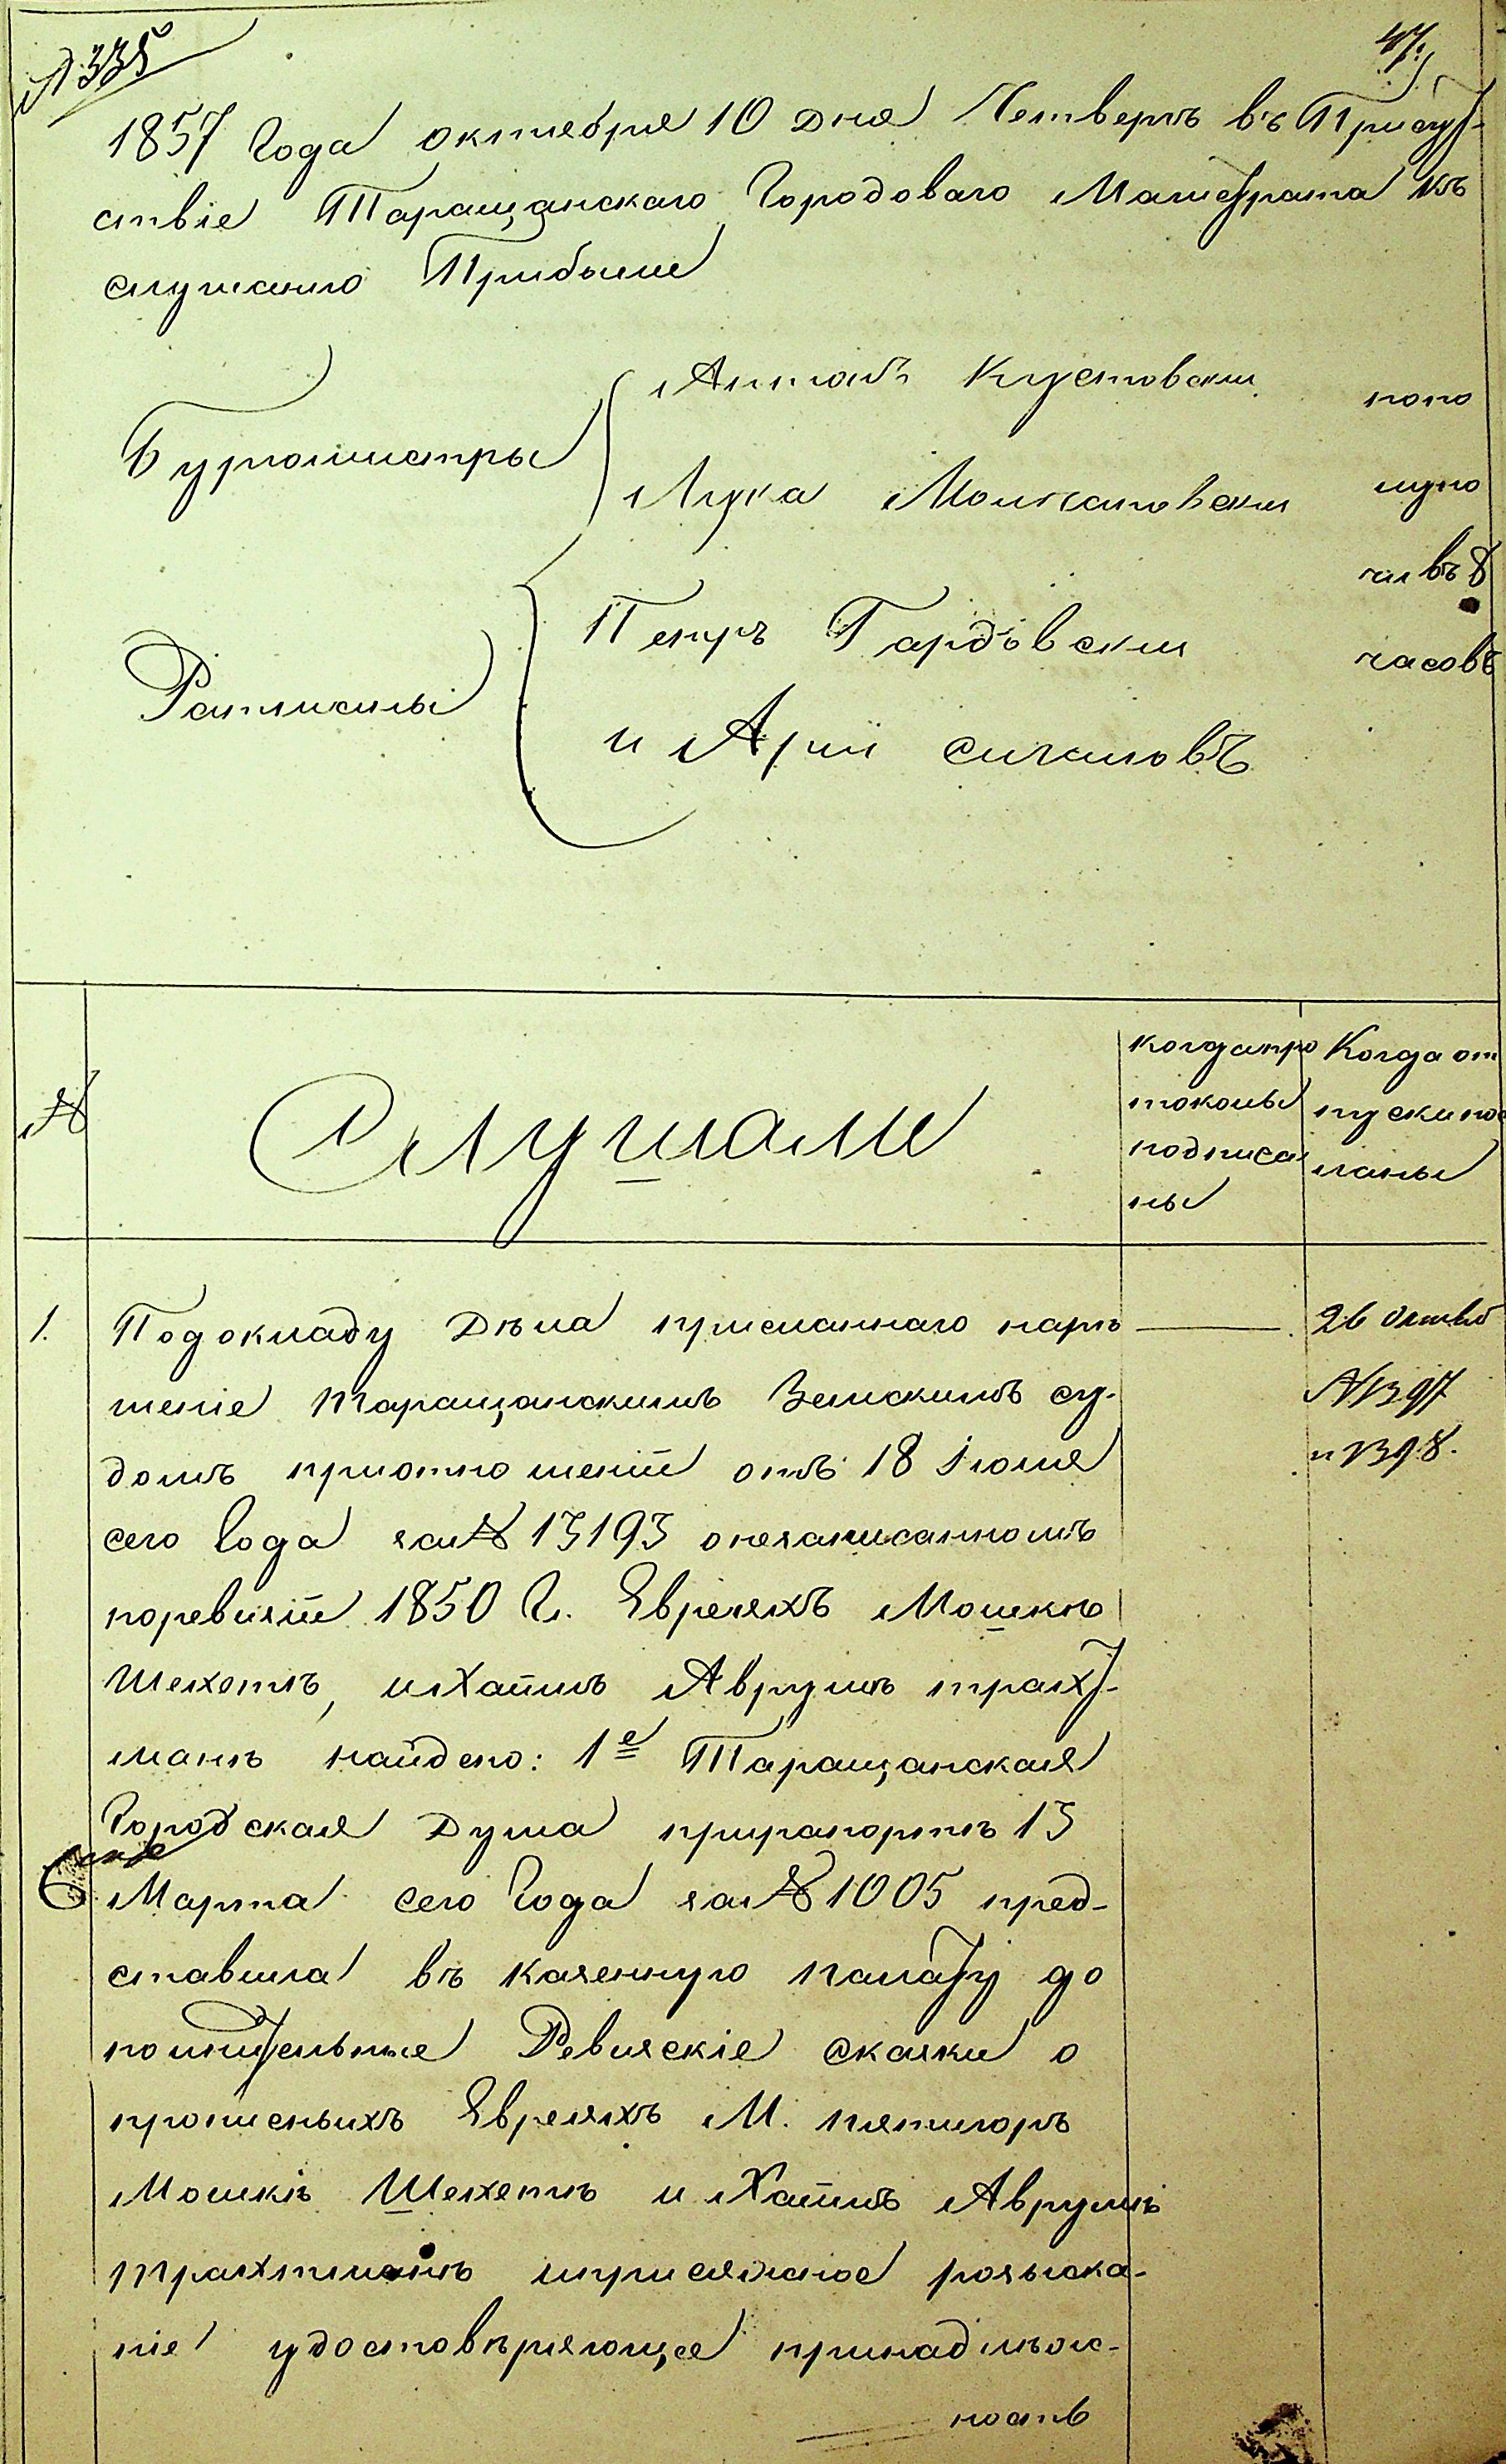 № 335
47.
1857 Года октября 10 дня Четвергъ въ Присут-
ствіе Таращанскаго Городоваго Магистрата къ
слушанию Прибыли
Бургомистры
Антонъ Кустовски
Лука Молчановски
Ратманы
Петръ Гардовски
и Аріи сигаловъ
попо
лудно
чи въ 8
часовъ
№
Слушали
когда про
токолы
подписа
ны
Когда от
пуски пос
ланы
1.
По докладу Дѣла присланнаго нарѣ
шеніе Таращанскимъ Земскимъ су-
домъ приотношеніи отъ 18 Іюля
сего Года за № 13193 онезаписанномъ
поревизіи 1850 Г. Евреяхъ Мошкѣ
Шехетѣ, и Хаимѣ Аврумѣ трахт-
манѣ найдено: 1е Таращанская
Городская Дума прирапортѣ 13
Марта сего Года за № 1005 пред-
ставила въ казенную палату до
полнительные Ревизскіе сказки о
Евреяхъ М. пятигоръ
Мошкѣ Шехетѣ и Хаимѣ Аврумѣ
Трахтманѣ иприсяжное розыска-
ніе удостовѣряюще принадлѣж-
ность
26 Октяб
№ 1397
и 1398.